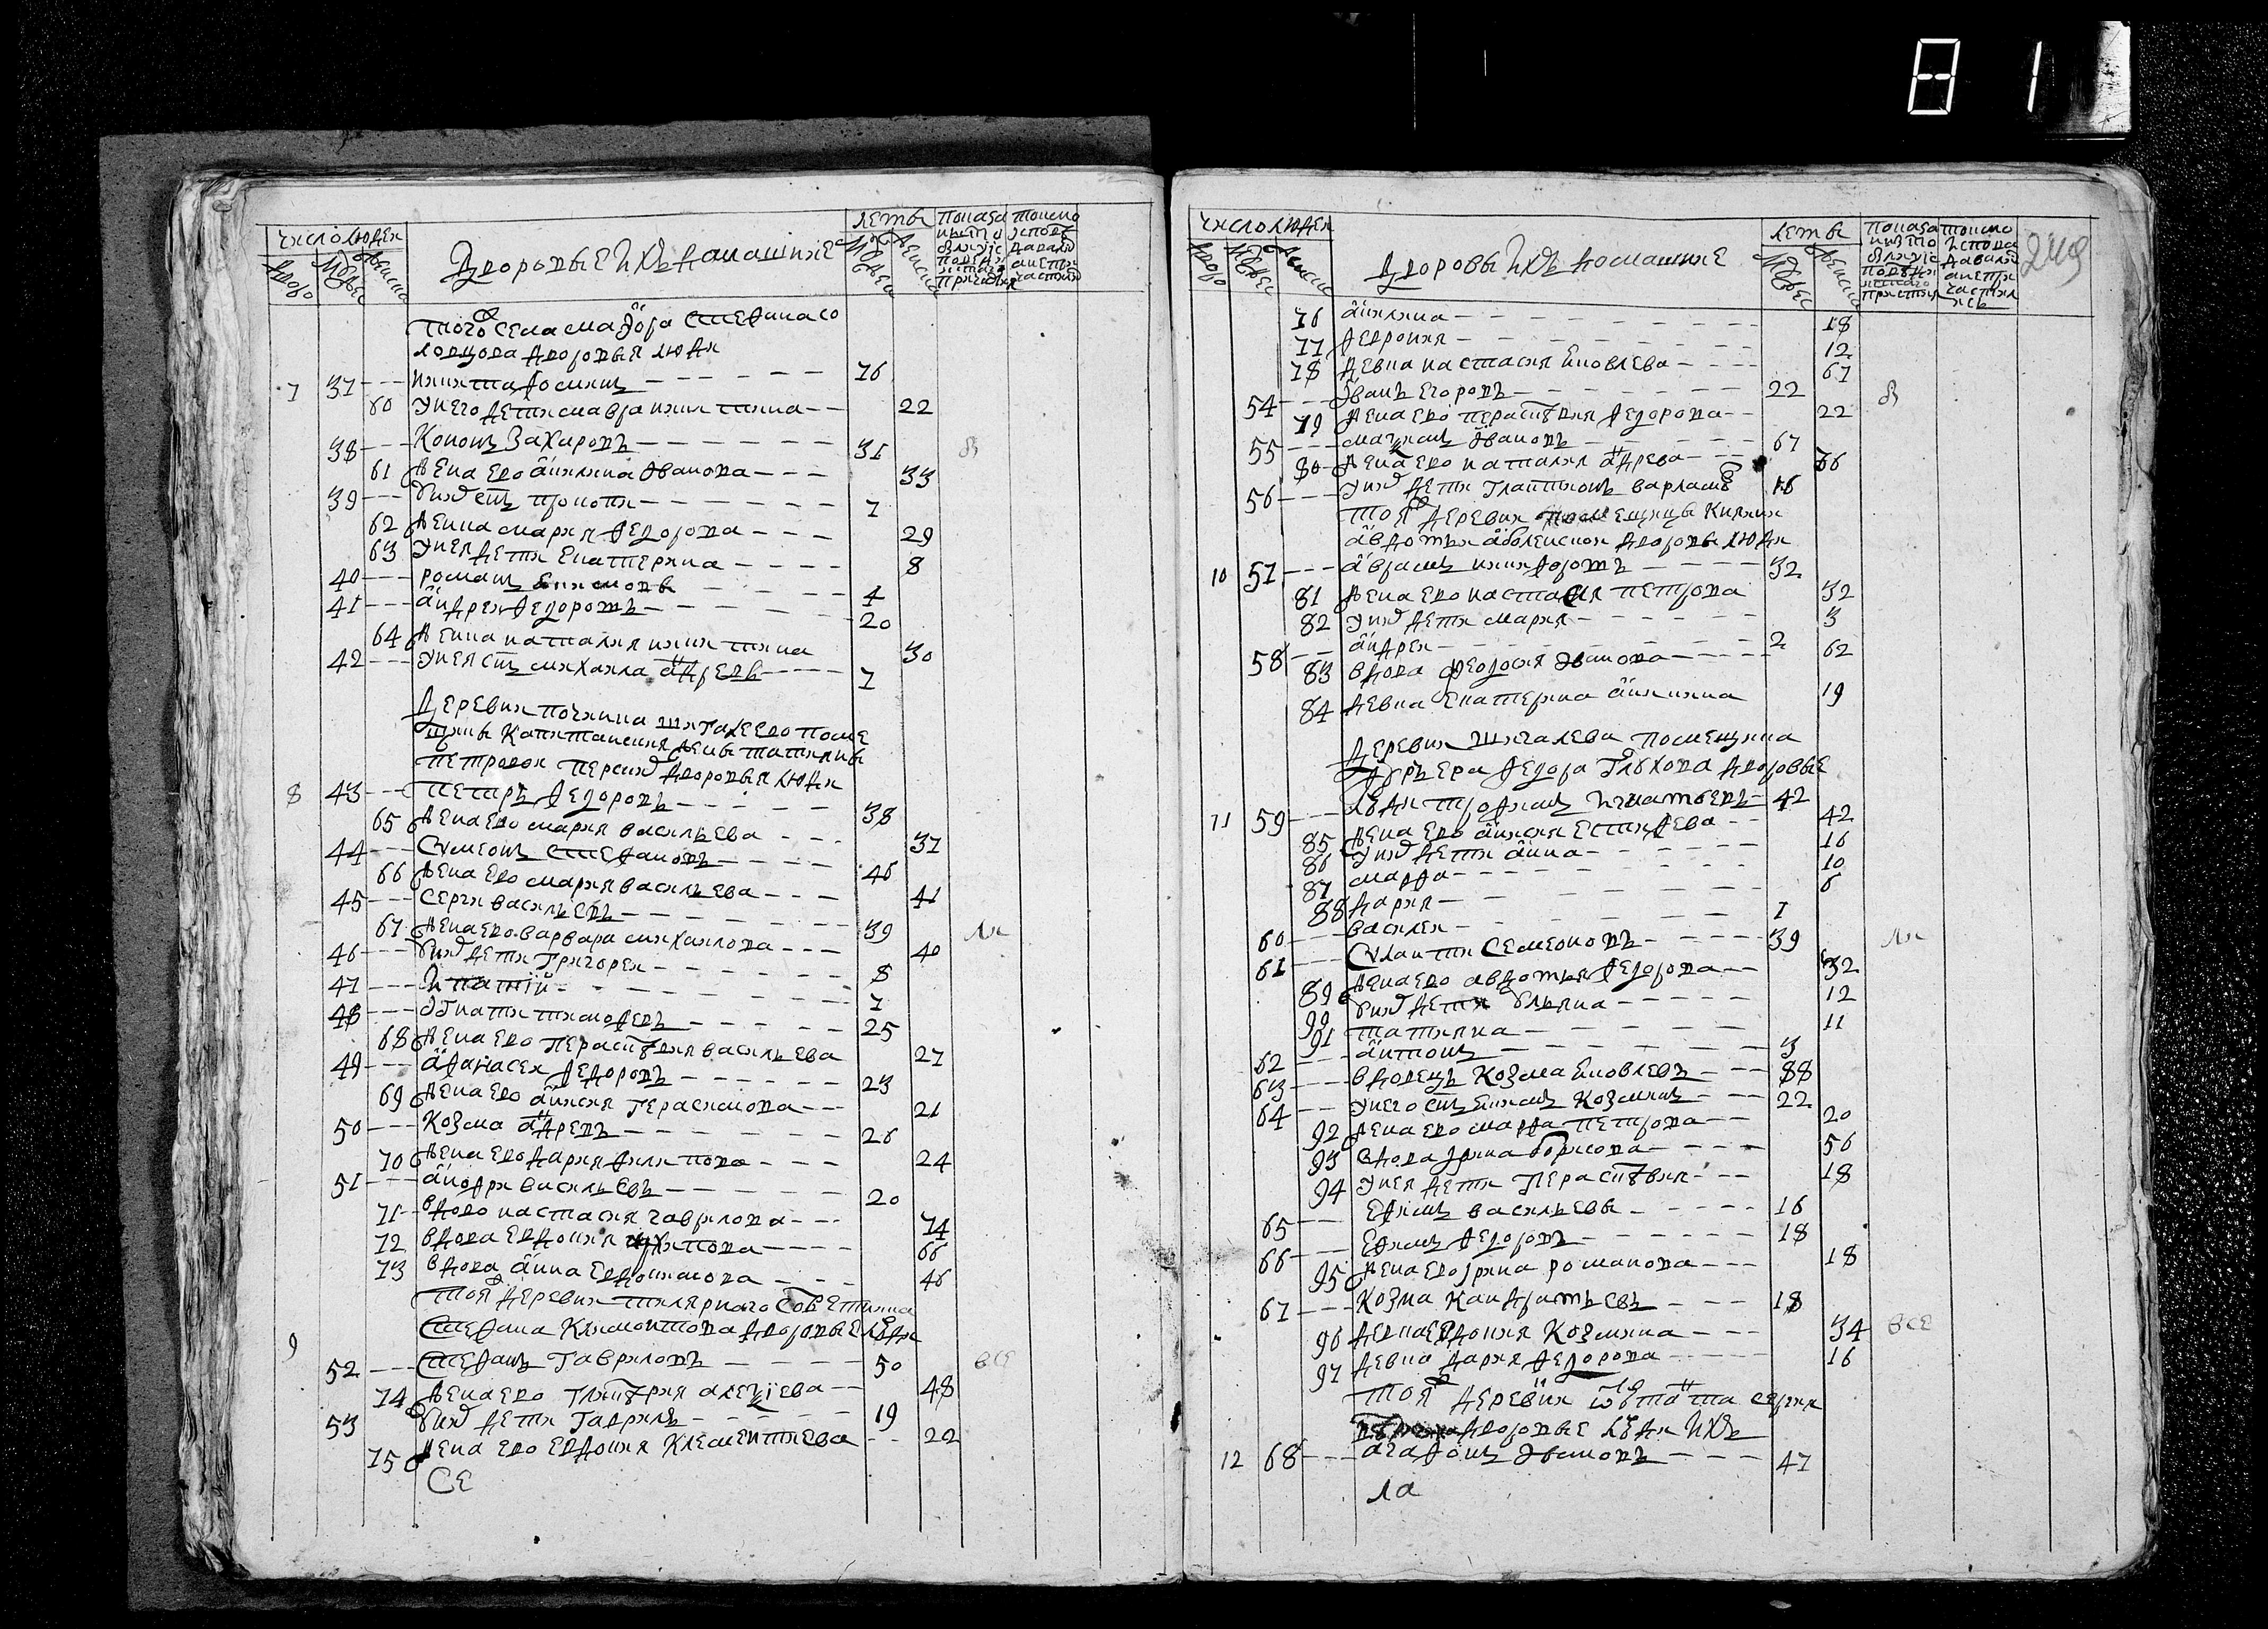 81
число людей
дворо мужес женска
Дворовые и ихъ домашние
леты
мужеска женска
показание кто был у исповеди и святаго причастия
249
того ж села маэора Стефана Со
ловцова дворовыя люди
7 37 --- никита фомин --- 76
60 у него дети мавра никитина -- 22
38 --- Конон Захаровъ --- 31
61 жена его акилина Иванова --- 33
39 --- у них сын прокопи --- 7
62 девка мария федорова --- 29
63 у нея дети Екатерина --- 8
40 --- роман --- 4
41 --- андреи федоровъ --- 20
64 женка наталия никитина 30
42 --- у нея сын михаила андреевъ --- 7
Деревни починка шигалеево поме
щицы Капитанския жены татияны
петровои дворовыя люди
8 43 --- петръ федоровъ --- 38
65 жена его мария васильева --- 37
44 --- Симеон Стефановъ --- 46
66 жена его мария васильева --- 41
45 --- серги васильевъ --- 39
67 жена его варвара михаилова --- 40
46 --- у них дети Григореи --- 8
47 --- Ипатий --- 7
48 --- Игнати тимофеевъ --- 25
68 жена его Параскувия васильева 27
49 --- афанасеи федоровъ --- 23
69 жена его анисия Герасимова --- 21
50 --- Козма андреевъ --- 26
70 жена его дария филипова --- 24
51 --- андри васильевъ --- 20
71 -- вдова настасия гаврилова --- 74
72 вдова Евдокия --- 66
73 вдова анна Евдокимова --- 46
тоя ж деревни титулярного Советника
Стефана Климонтова дворовые люди
9 52 --- Стефан Гавриловъ --- 50 все
74 жена его Гликерия алексиева -- 48
53 у них дети Гаврилъ --- 19
75 жена его Евдокия Клементиева -- 22
Се
число людей
дворо мужес женска
дворовы ихъ домашние
леты
мужес женска
76 акилина --- 18
77 феврония --- 12
78 девка настасия Яковлева --- 67
54 --- Иванъ Егоровъ --- 22
79 жена его Параскувия федорова -- 22
55 --- максим Ивановъ --- 67
80 жена его наталия андреева --- 66
56 --- у них дети варлам 16
тоя ж деревни помещицы Княжни
авдотьи аболенскои дворовы люди
10 57 --- аврам никифоровъ --- 32
81 жена его настасия петрова 32
82 у них дети мария --- 3
58 -- андреи --- 2
83 вдова феодосия Иванова --- 62
84 девка Екатерина аникина 19
Деревни шигалева помещика
федора Глухова дворовые
11 59 --- люди трофим Игнатьевъ 42
85 жена его анисия Естифеева -- 42
86 у них дети анна --- 16
87 марфа --- 10
88 дария --- 6
60 --- василеи --- 1
61 --- Силанти Семеоновъ --- 39
89 жена его авдотья федорова -- 32
90 у них дети Ульяна --- 12
91 татияна --- 11
62 --- антон --- 3
63 --- вдовец Козма Яковлевъ --- 88
64 -- у него сын Яким Козмин --- 22
92 жена его марфа петрова -- 20
93 вдова Ирина борисова --- 56
94 у нея дети Параскувия --- 18
65 --- Ефим васильевъ --- 16
66 --- Ефим федоровъ --- 18
95 жена его Ирина романова --- 18
67 --- Козма Кандратьевъ --- 18
96 девка Евдокия Козмина --- 34 все
97 девка дария федорова --- 16
тоя ж деревни сержа
дворовые люди ихъ
12 68 --- агафон Ивановъ --- 47
ла